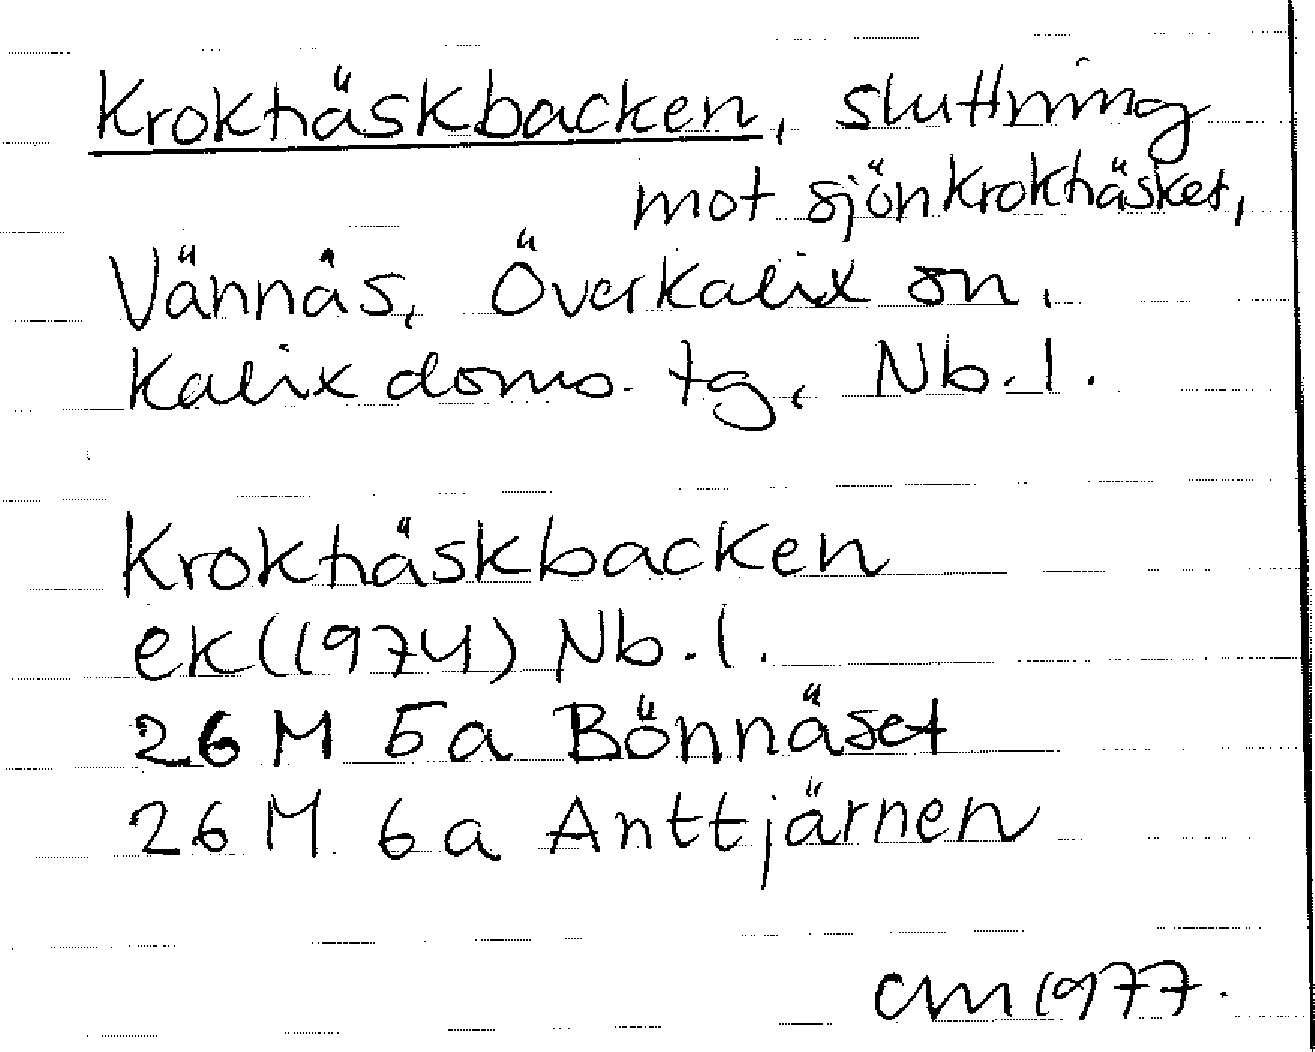 Krokträskbacken, sluttning
mot sjön Krokträsket,
Vännäs, Överkalix sn.
Kalix doms. tg, Nb. l.
Krokträskbacken
ek (1974) Nb. l.
26 M 5a Bönnäset
26 M 6a Anttjärnen
CM 1977.